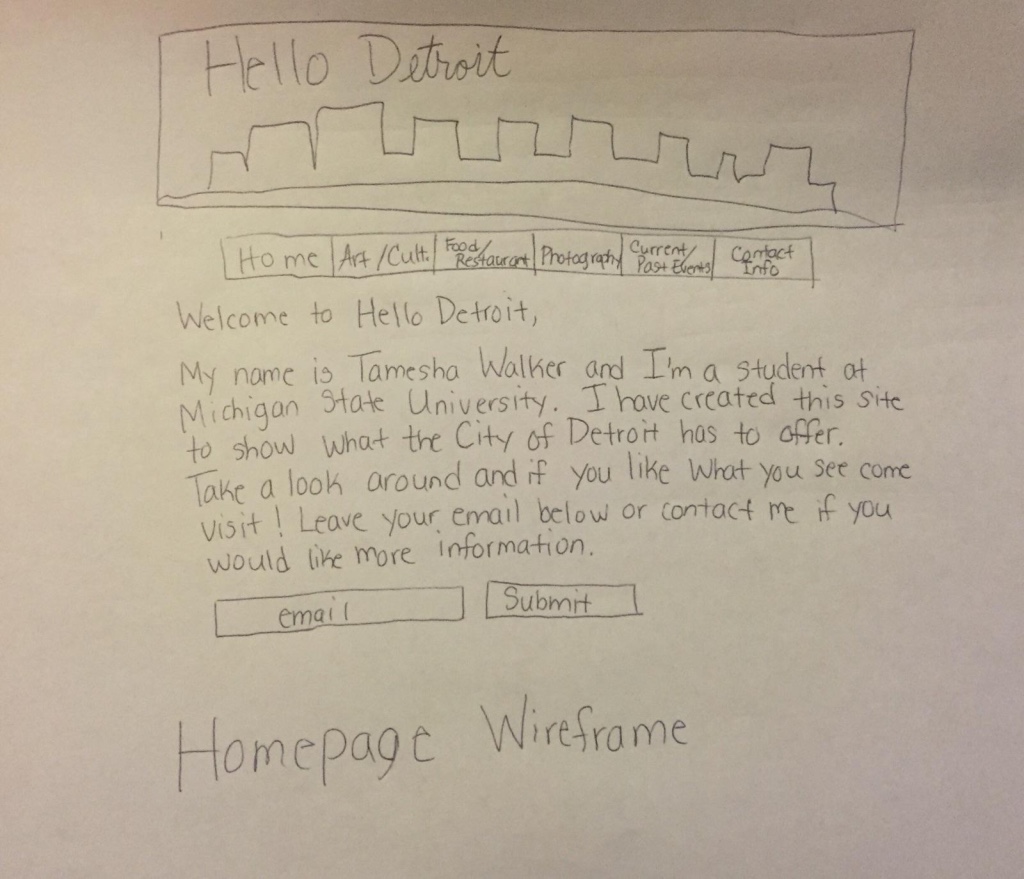 Hello Detroit
Home Art/Cult. Food/Restaurant Photography Current/Past Events Contact Info
Welcome to Hello Detroit,
My name is Tamesha Walker and I'm a student at
Michigan State University. I have created this site
to show what the City of Detroit has to offer.
Take a look around and if you like what you see come
visit! Leave your email below or contact me if you
would like more information.
email Submit
Homepage Wireframe